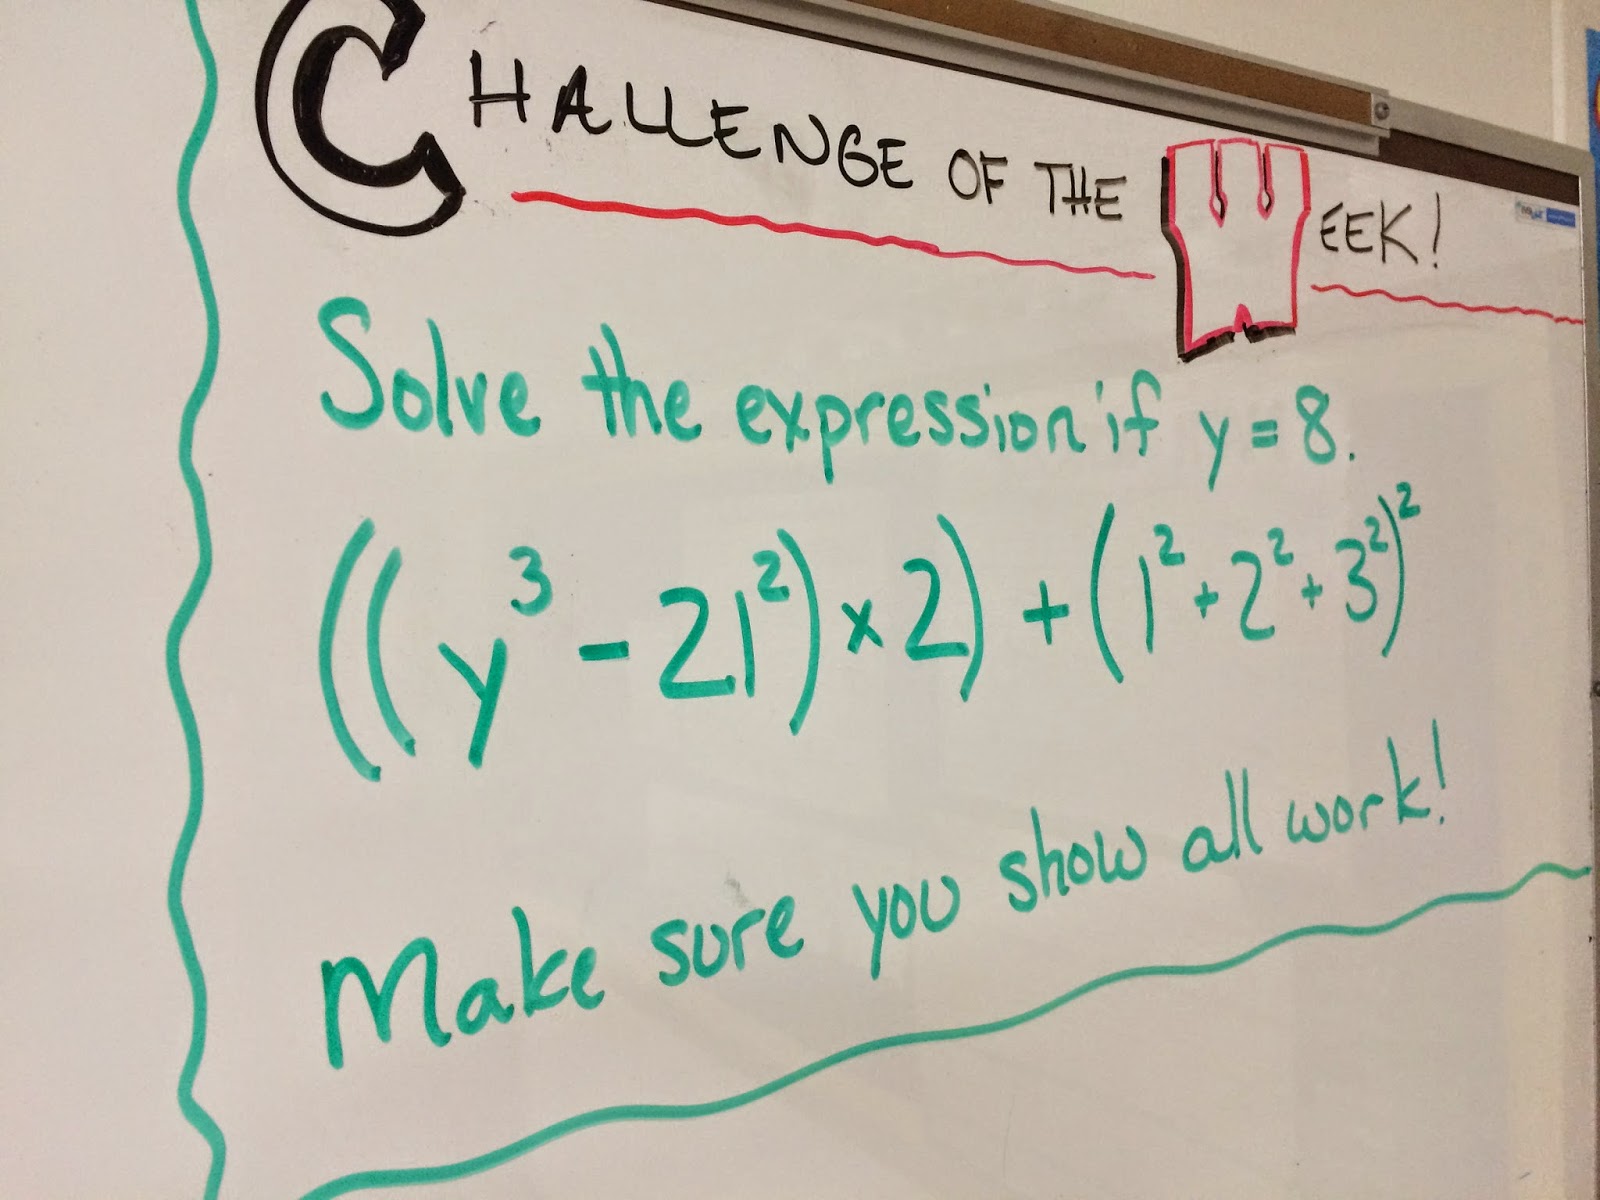 CHALLENGE OF THE WEEK!
Solve the expression if y = 8.
((y³ - 21²) × 2) + (1² + 2² + 3²)²
Make sure you show all work!